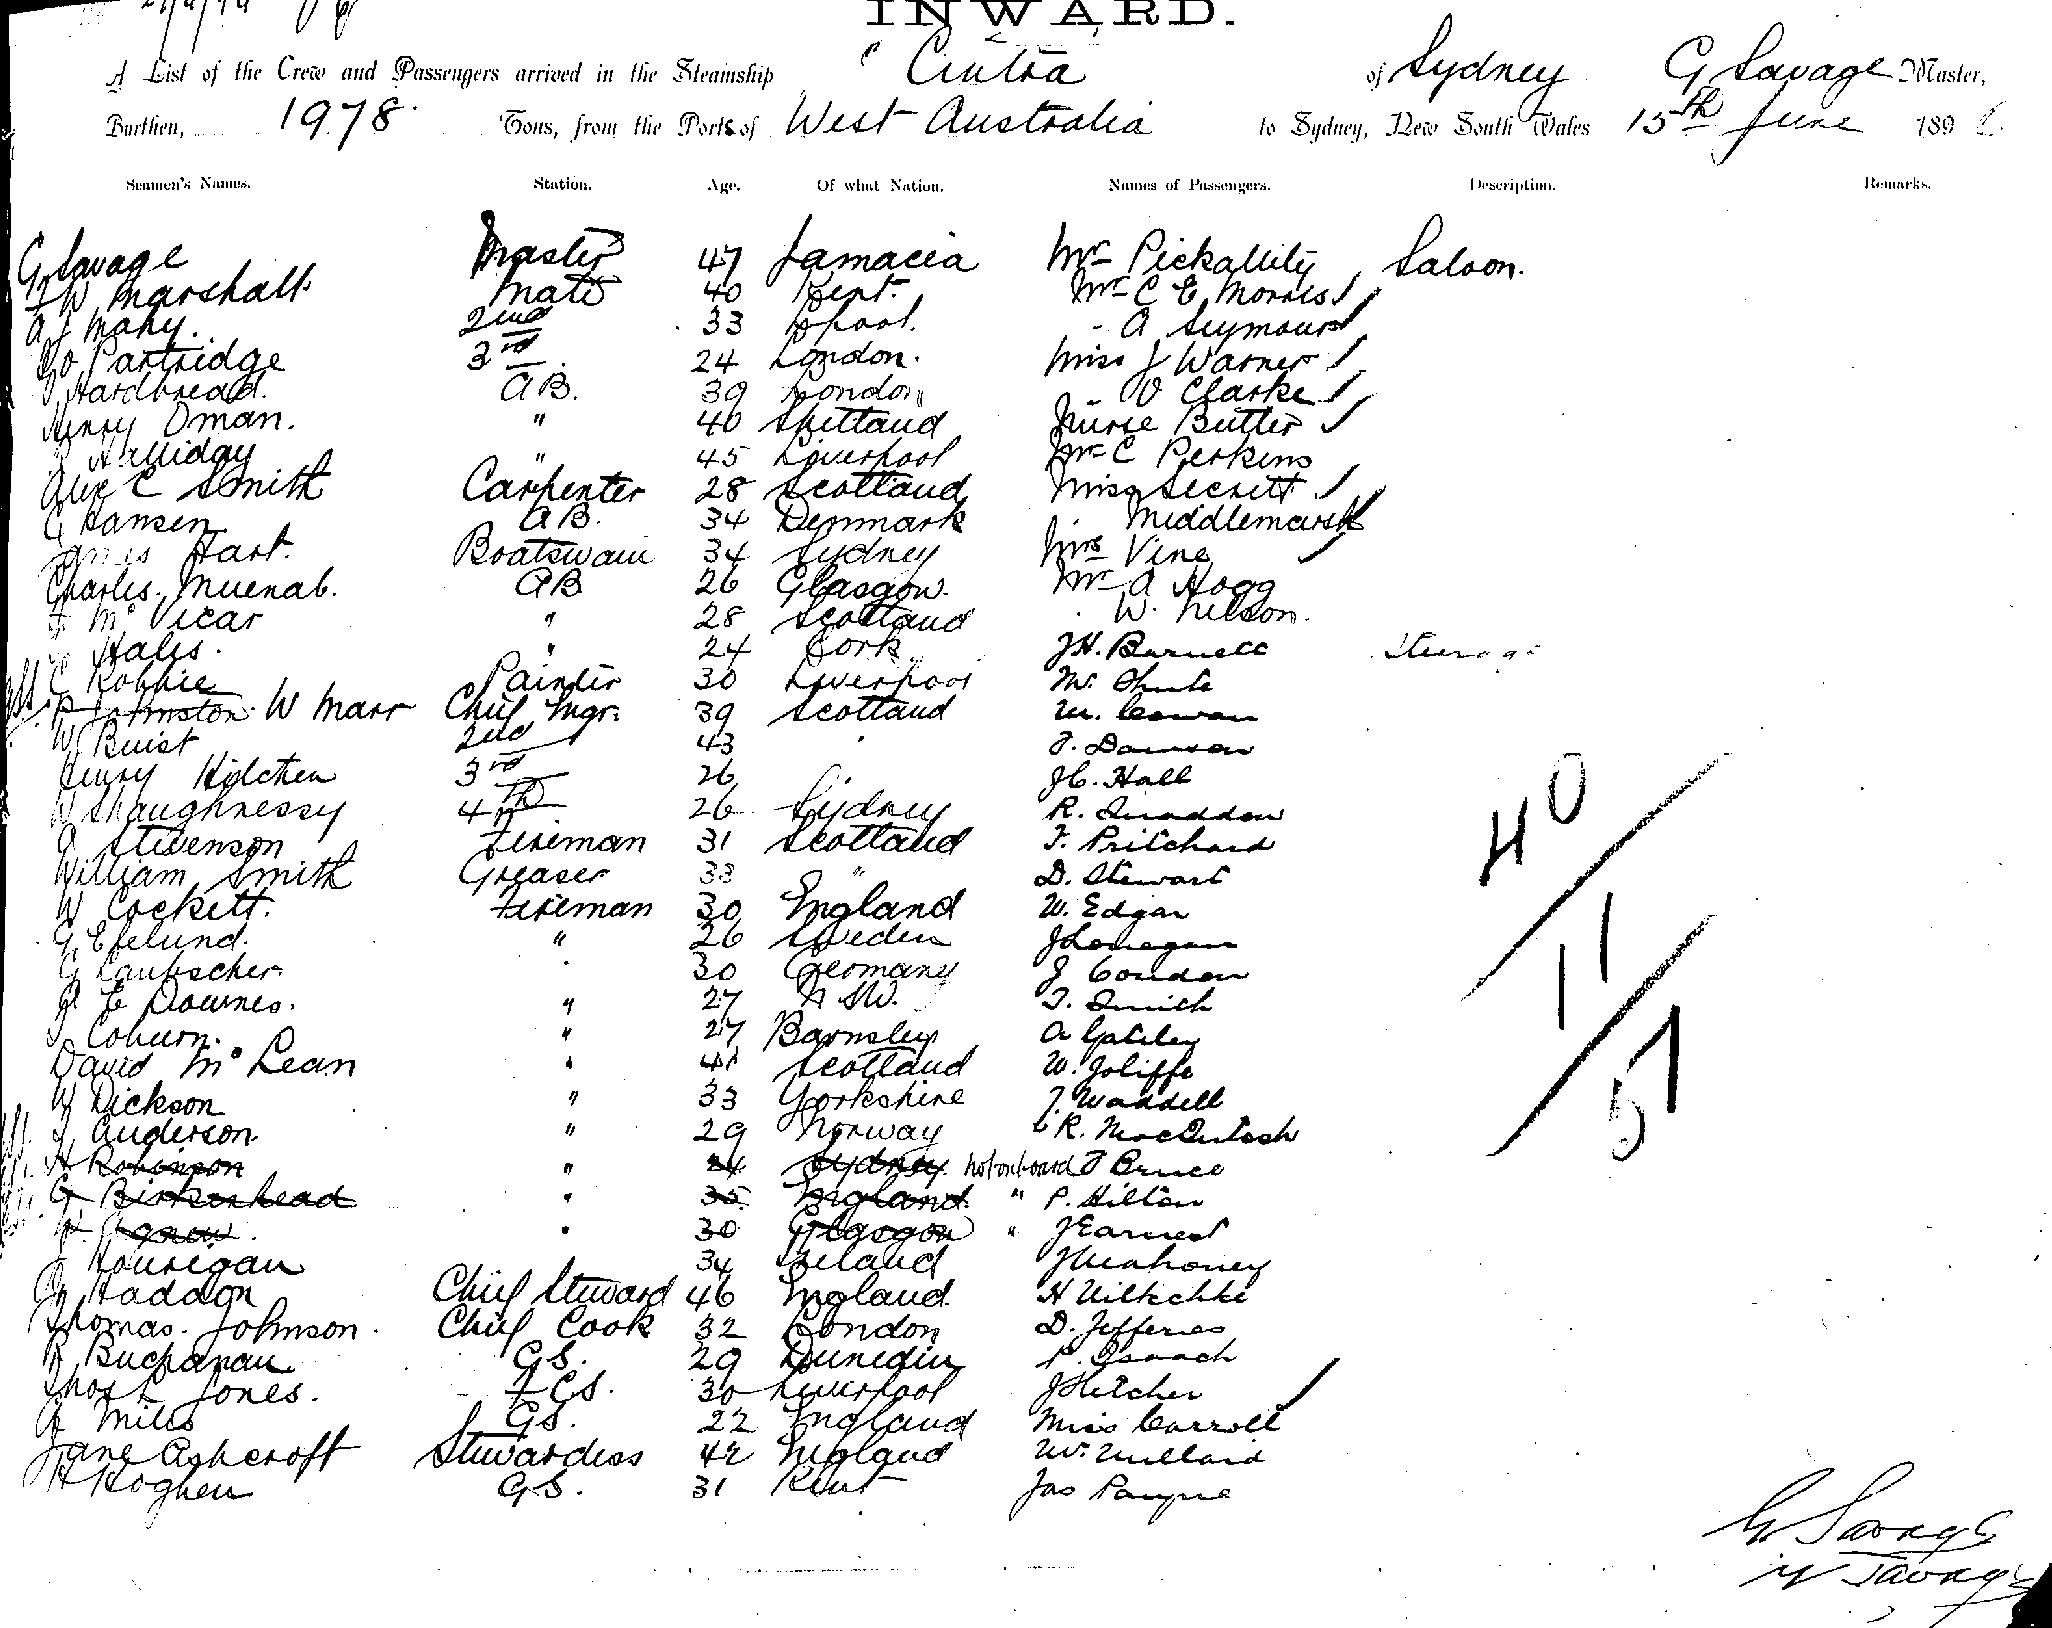 INWARD.
A List of the Crew and Passengers arrived in the Steamship "Cintra of Sydney G Savage Master,
Burthen, 1978 Tons, from the Ports of West Australia to Sydney, New South Wales 15th June 189
Seamen's Names. Station. Age. Of what Nation. Names of Passengers. Description. Remarks.
G Savage Master 47 Jamacia Mr Pickallity Saloon.
W Marshall. Mate 40 Kent. Mr C E Morris
A J Mahy. 2nd 33 L'pool. - A Seymour
Partridge 3rd 24 London. Miss J Warner
Hardbread. AB. 39 London " O Clarke
Henry Oman. " 40 Shetland Nurse Butler
Halliday " 45 Liverpool Mr C Perkins
Alex C Smith Carpenter 28 Scotland Miss Seckett
C Hansen AB. 34 Denmark Middlemarsh
James Hart. Boatswain 34 Sydney Mrs Vine
Charles. Muenab. AB 26 Glasgow. Mr A Hogg
McVicar " 28 Scotland W. Nelson.
Hales. " 24 Cork J.H. Burnett Steerage
C Robbie Painter 30 Liverpool M. Shute
Johnston. W Marr Chief Engr. 39 Scotland M. Cowan
W Buist 2nd 43 T. Dawson
Henry Kitchen 3rd 26 J.C. Hall
W Shaughnessy 4th 26 Sydney R. Snaddon
Stevenson Fireman 31 Scotland F. Pritchard
William Smith Greaser 33 " D. Stewart
W Cockett. Fireman 30 England W. Edgar
G. Efelund. " 26 Sweden J Lonegan
G Laubscher " 30 Germany J Condon
E Downes. " 27 N.S.W. T. Smith
Coburn. " 27 Barnsley A Gateley
David McLean " 41 Scotland W. Joliffe
W Dickson " 33 Yorkshire J. Waddell
Anderson " 29 Norway R. MacIntosh
H Robinson " 24 Sydney. not on board T Bruce
G. Birkenhead " 35 England. " P. Hilton
Agnew. " 30 Glasgow " J Earnest
Hourigan 34 Ireland J Mahoney
Haddon Chief Steward 46 England. H Wiltschke
Thomas. Johnson. Chief Cook 32 London D. Jefferies
R Buchanan G.S. 29 Dunedin P. Isaach
Thos L Jones. F.C.S. 30 Liverpool J Hitcher
Mills G.S. 22 England Miss Carroll
Jane Ashcroft Stewardess 42 England W. Millard
H Roghen G.S. 31 Kent Jas Payne
40
11
57
G Savage
W Savage